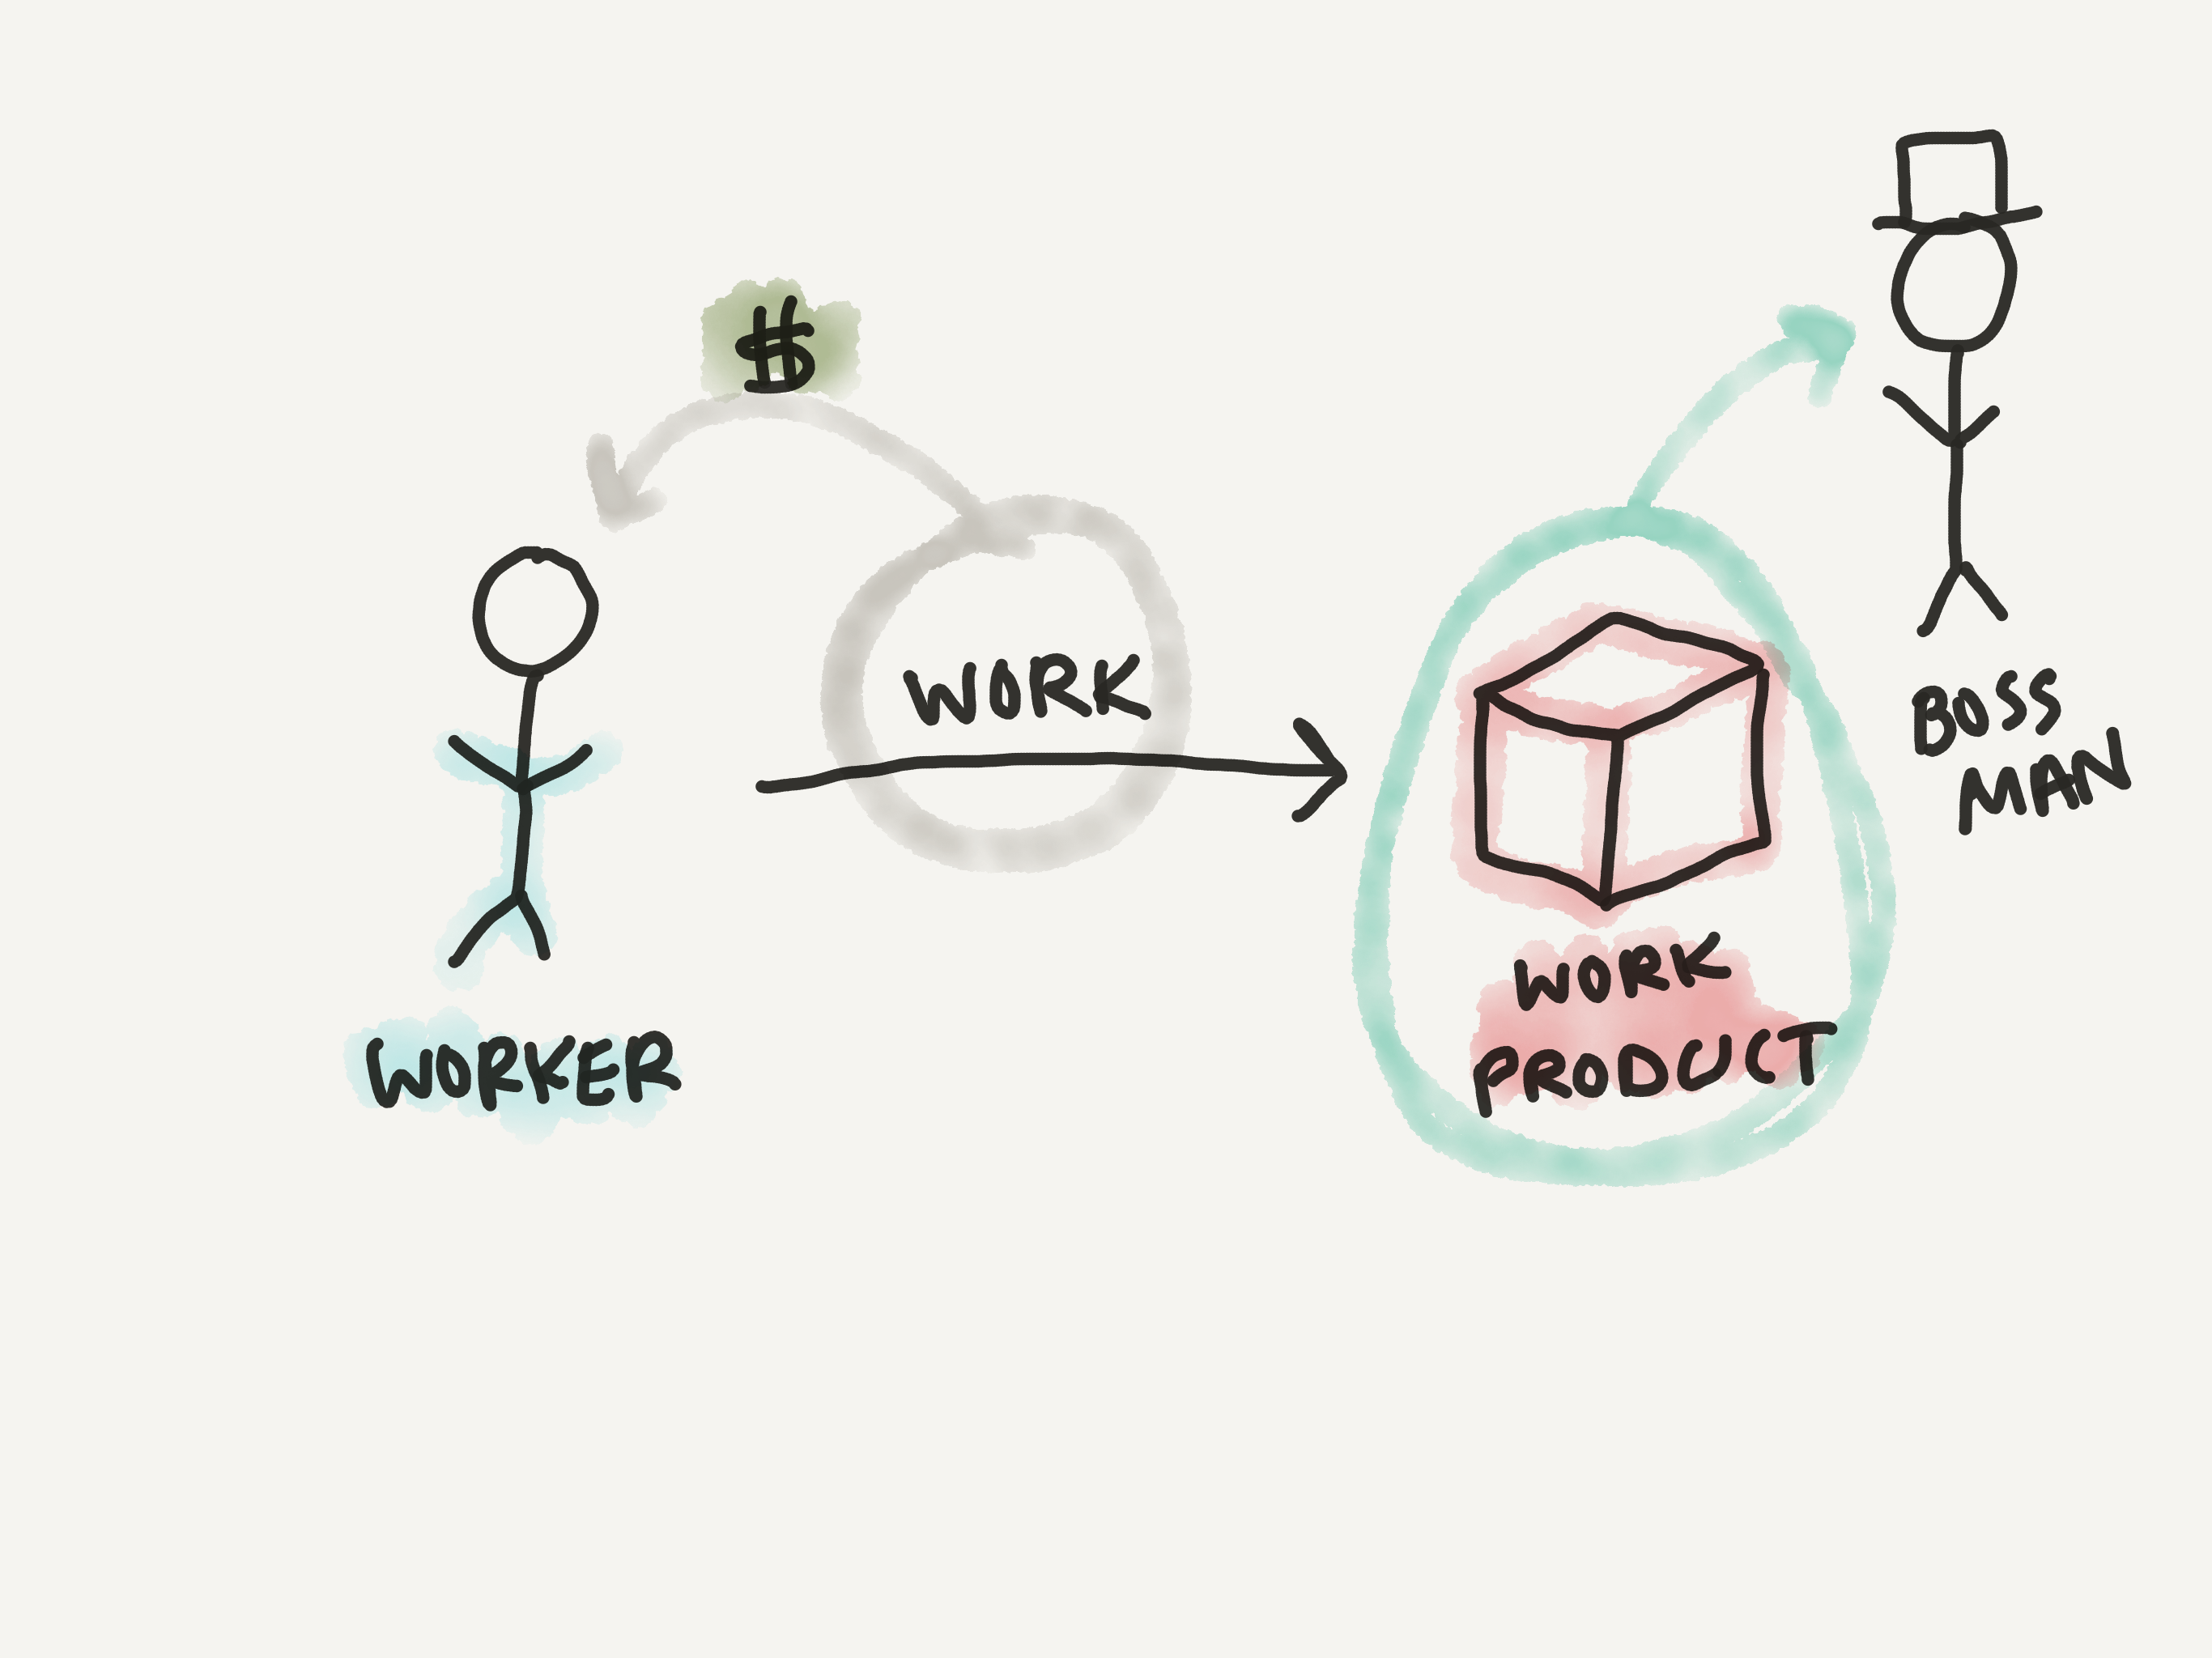 $
WORK
WORKER
WORK
PRODUCT
BOSS
MAN